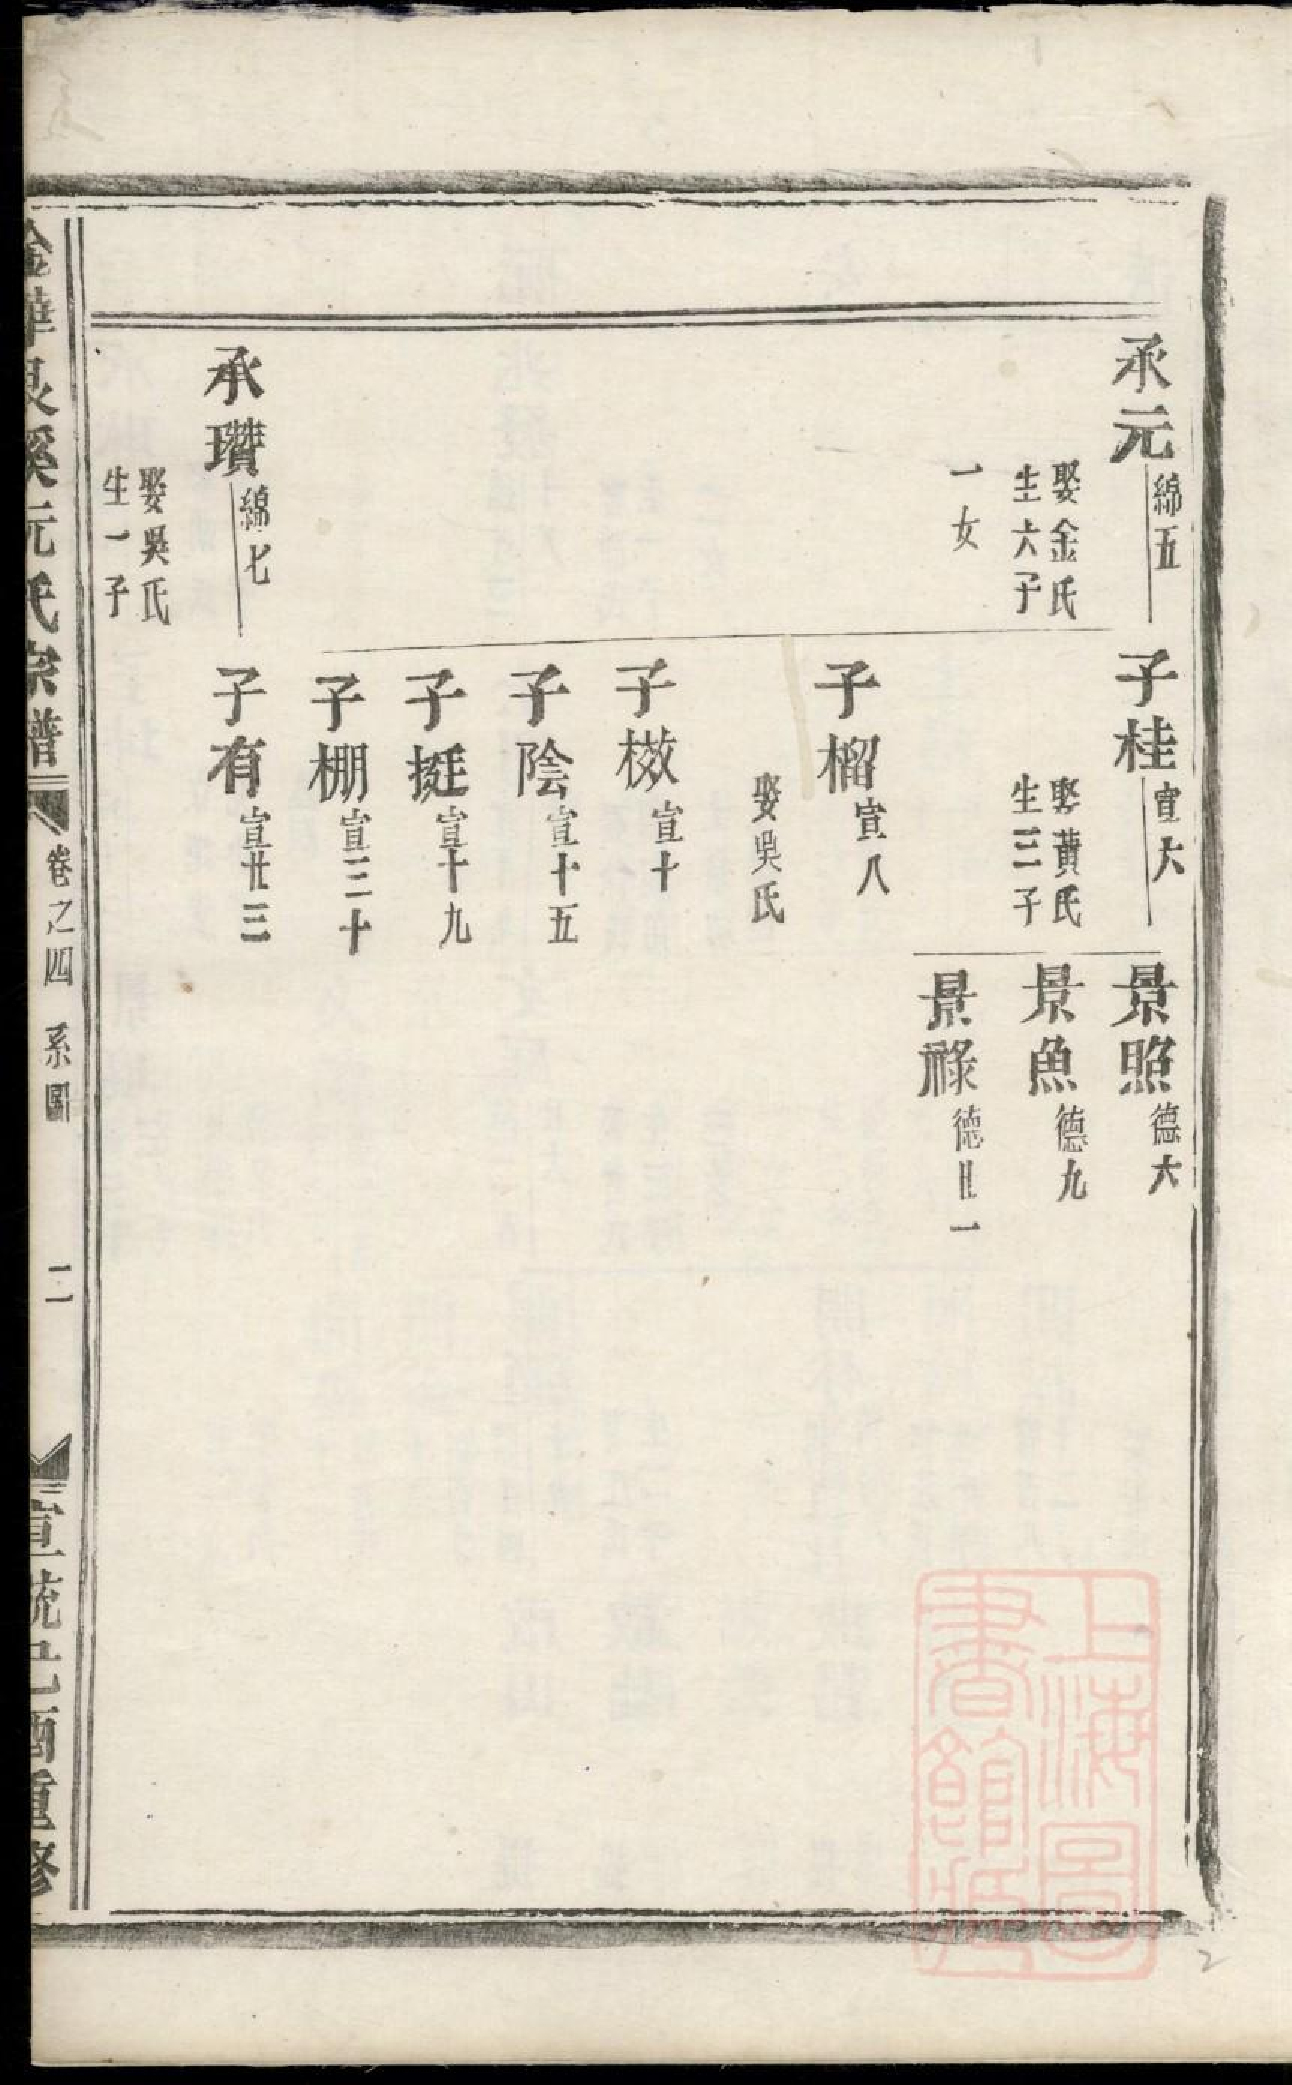 承元 綿五
娶金氏
生六子
一女
承瓚 綿七
娶吳氏
生一子
子桂 宣六
娶黃氏
生三子
子榴 宣八
娶吳氏
子㭝 宣十
子陰 宣十五
子挺 宣十九
子棚 宣三十
子有 宣廿三
景照 德六
景魚 德九
景祿 德廿一
金華泉溪阮氏宗譜
卷之四 系圖
二
宣統己酉重修
上海圖
書館藏
2